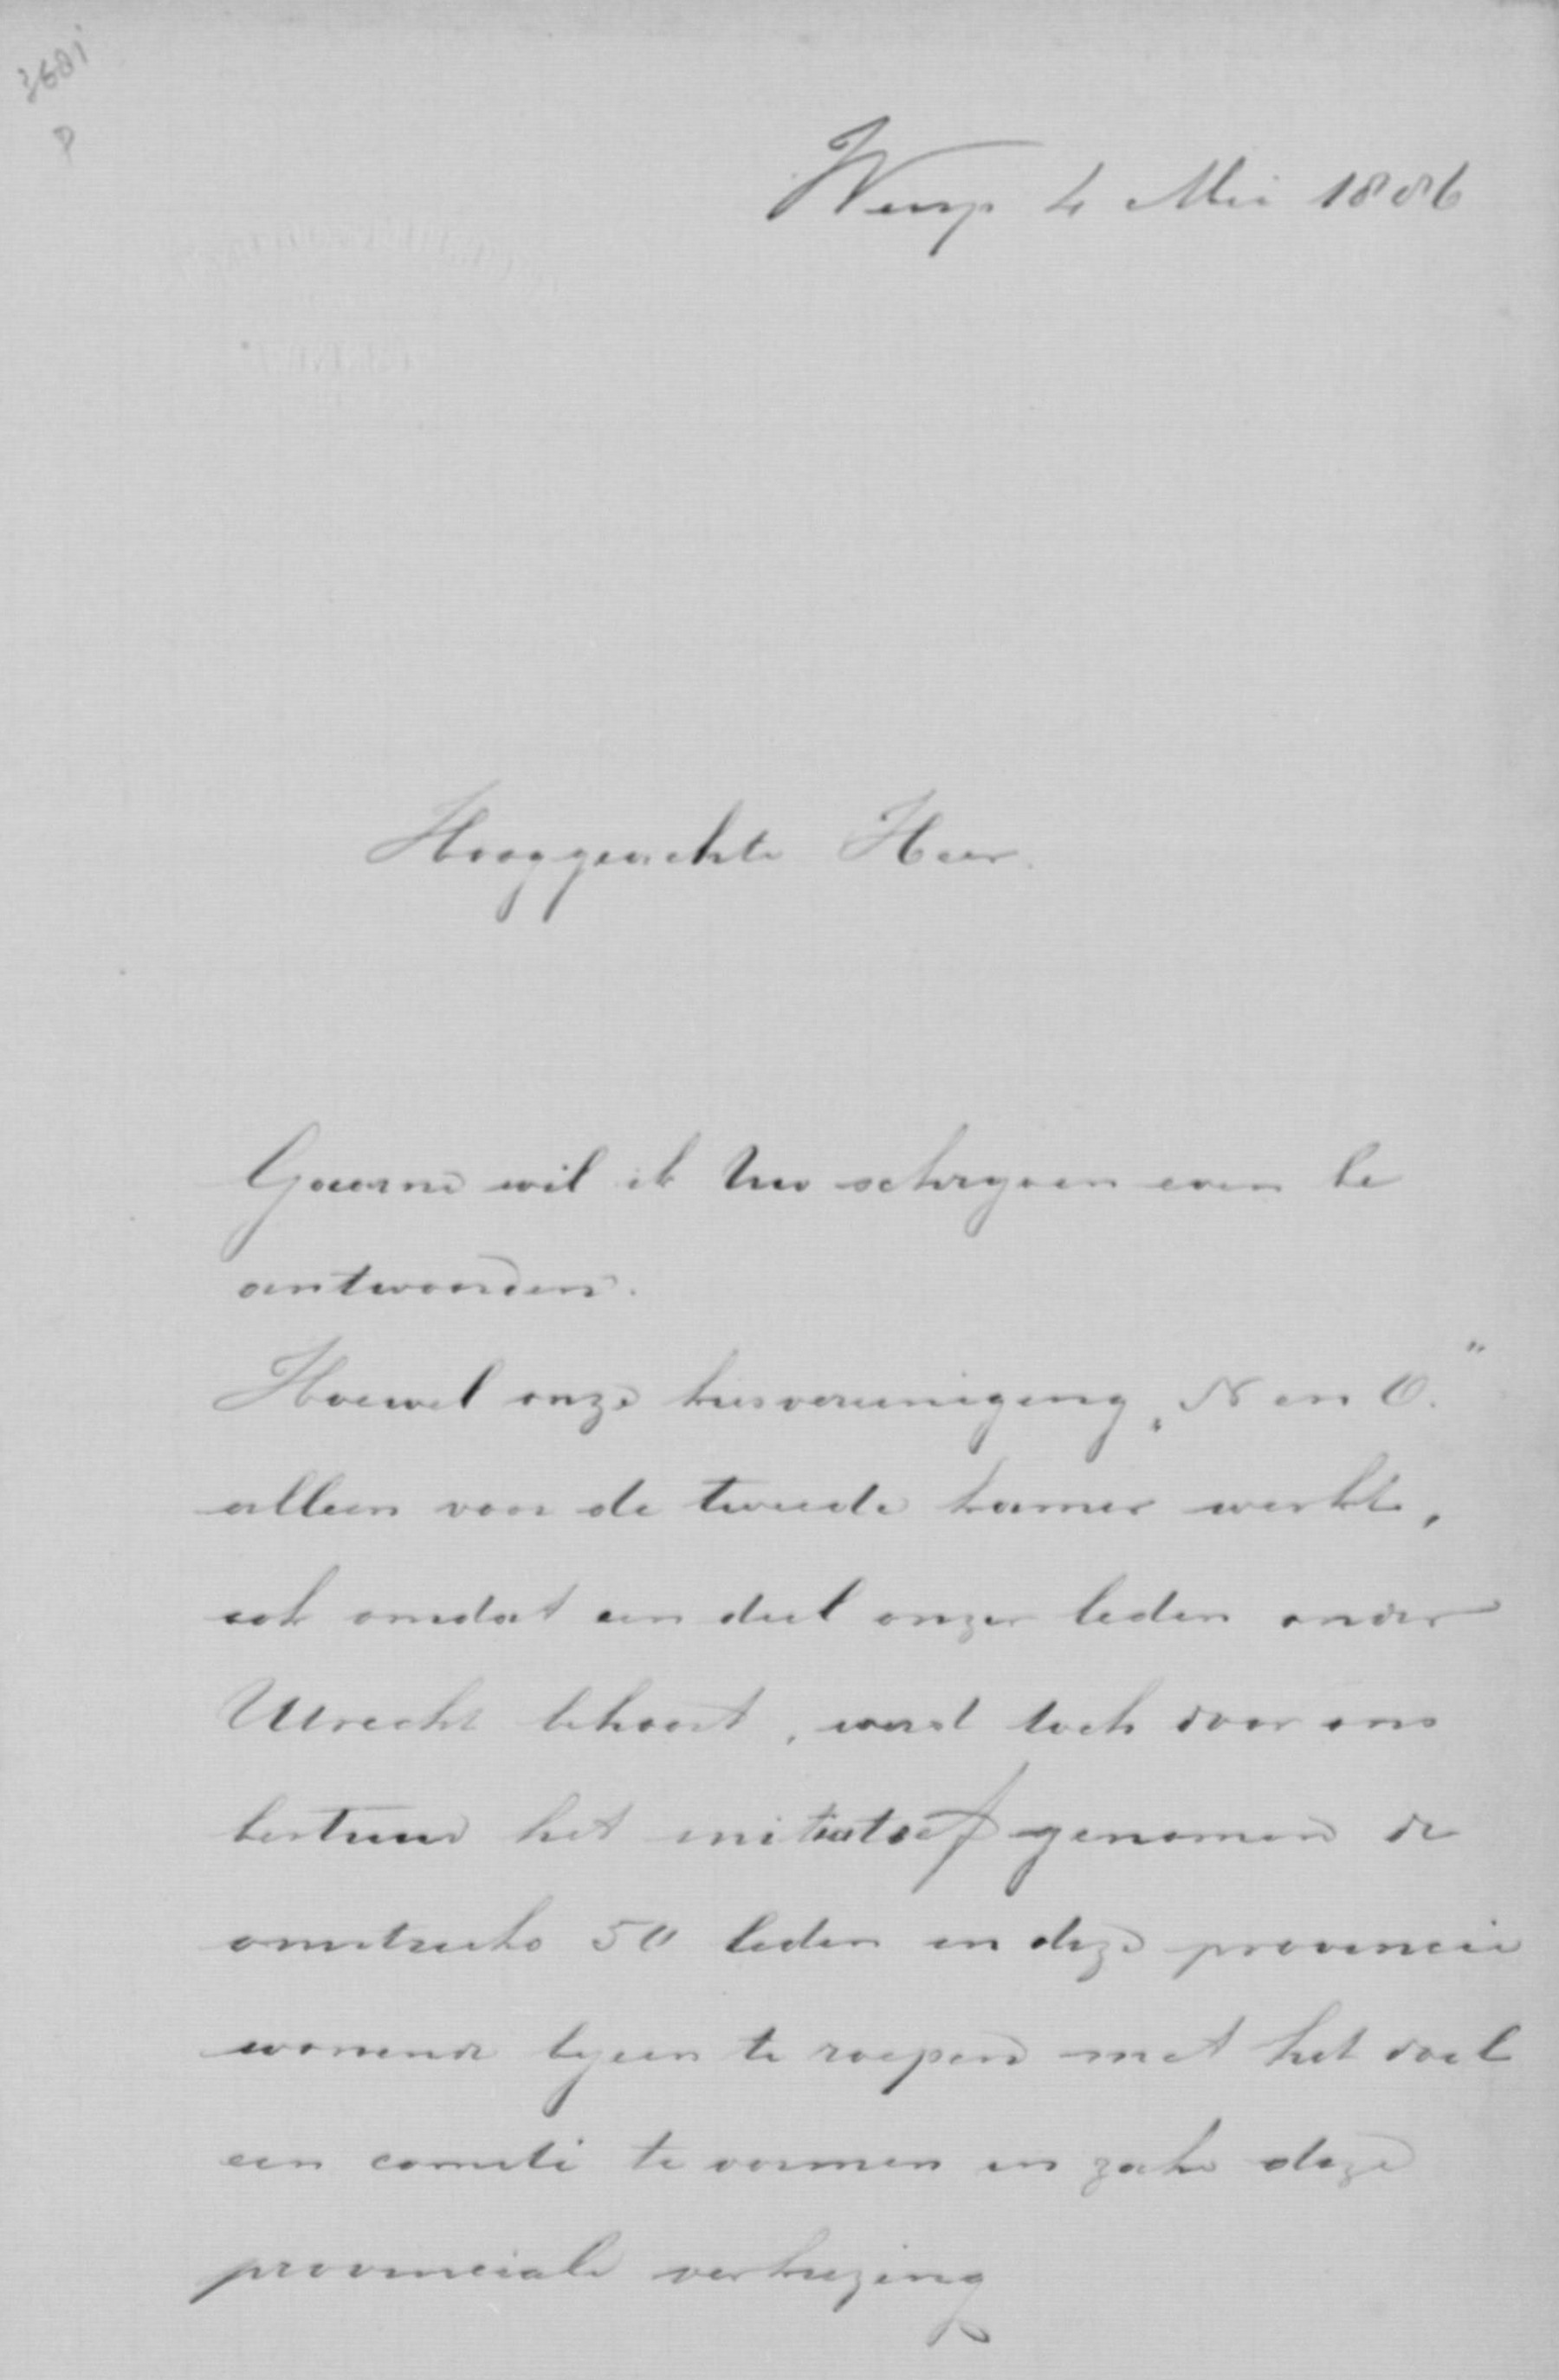 3681
P
Weesp 4 Mei 1886
Hooggeachte Heer.
Gaarne wil ik Uw schrijven even be
antwoorden.
Hoewel onze kiesvereeniging „N en O."
alleen voor de tweede kamer werkt,
ook omdat een deel onzer leden onder
Utrecht behoort, werd toch door ons
bestuur het initiatief genomen de
omstreeks 50 leden in deze provincie
wonende bijeen te roepen met het doel
een comité te vormen in zake deze
provinciale verkiezing